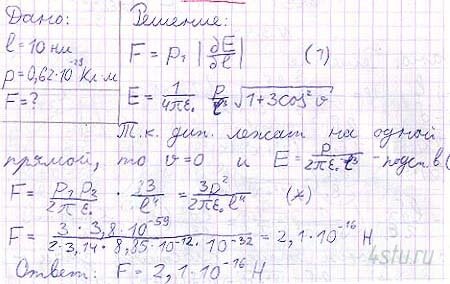 Дано:
l = 10 нм
p = 0,62·10⁻²⁹ Кл·м
F = ?
Решение:
F = p₁ |∂E/∂l| (1)
E = 1/4πε₀ p/l³ √1+3cos²υ
Т.к. дип. лежат на одной
прямой, то υ=0 и E = p/2πε₀l³ - подст. в (
F = p₁p₂/2πε₀ · 3/l⁴ = 3p²/2πε₀l⁴ (*)
F = 3·3,8·10⁻⁵⁹/2·3,14·8,85·10⁻¹²·10⁻³² = 2,1·10⁻¹⁶ Н
Ответ: F = 2,1·10⁻¹⁶ Н
4stu.ru